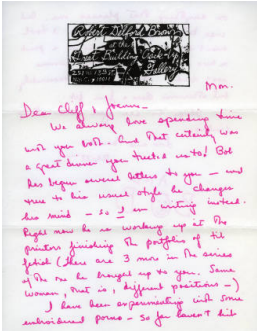 Robert Delford Brown
at the
Great Building Crack-Up
Gallery
251 W 13 ST
Mon.
Dear Cliff & 
We always love spending time
with you both. And that certainly was
a great dinner you treated us to! Bob
has begun several letters to you – and
true to his usual style he changes
his mind – so I am writing instead.
Right now he is working up at the
printers finishing the portfolio of tit
fetish (there are 3 more in the series
of the one he brought up to you. Same
woman, that is, different positions –)
I have been experimenting with some
embroidered porno – so far haven't